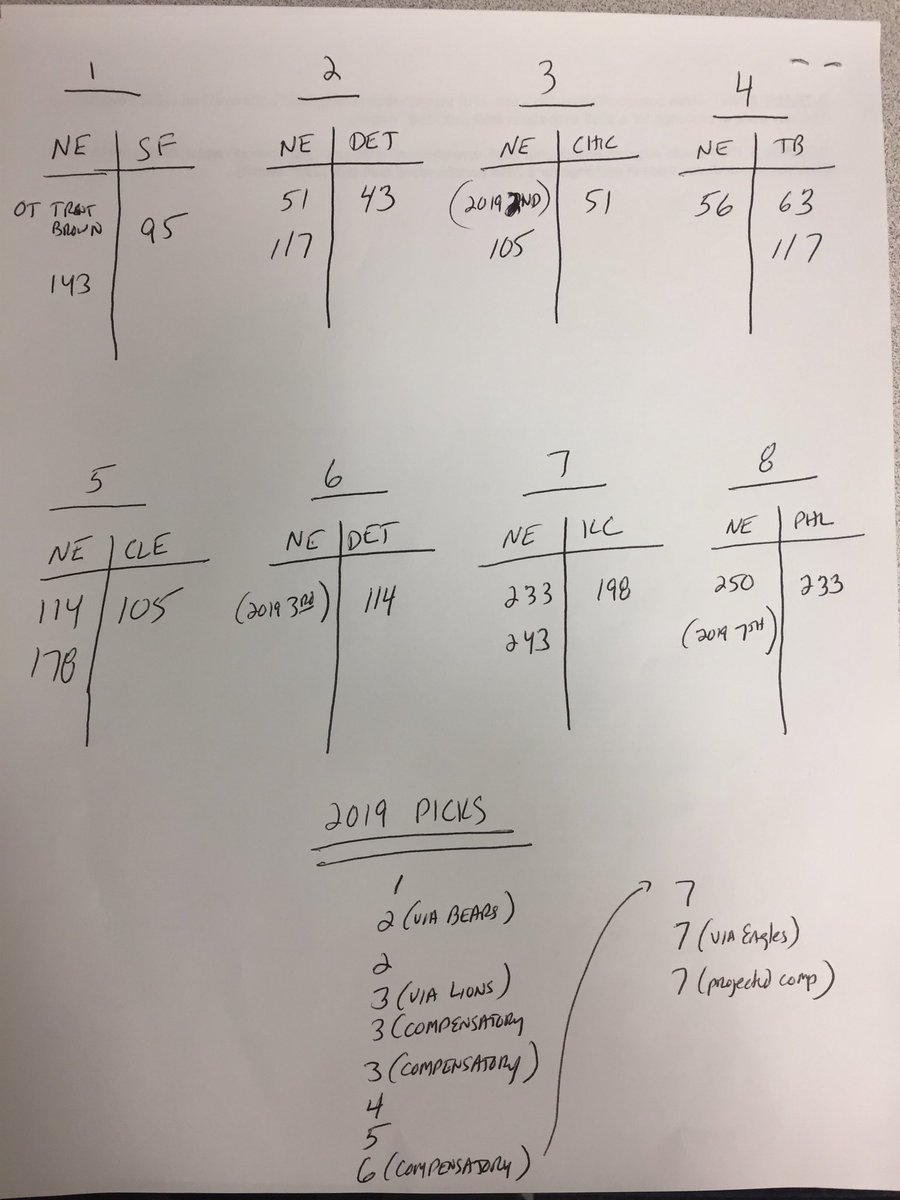 1
NE SF
OT TRENT
BROWN
95
143
2
NE DET
51 43
117
3
NE CHIC
(2019 2ND) 51
105
4
NE TB
56 63
117
5
NE CLE
114 105
178
6
NE DET
(2019 3RD) 114
7
NE KC
233 198
243
8
NE PHL
250 233
(2019 7TH)
2019 PICKS
1
2 (VIA BEARS)
2
3 (VIA LIONS)
3 (COMPENSATORY
3 (COMPENSATORY)
4
5
6 (COMPENSATORY)
7
7 (VIA Eagles)
7 (projected comp)